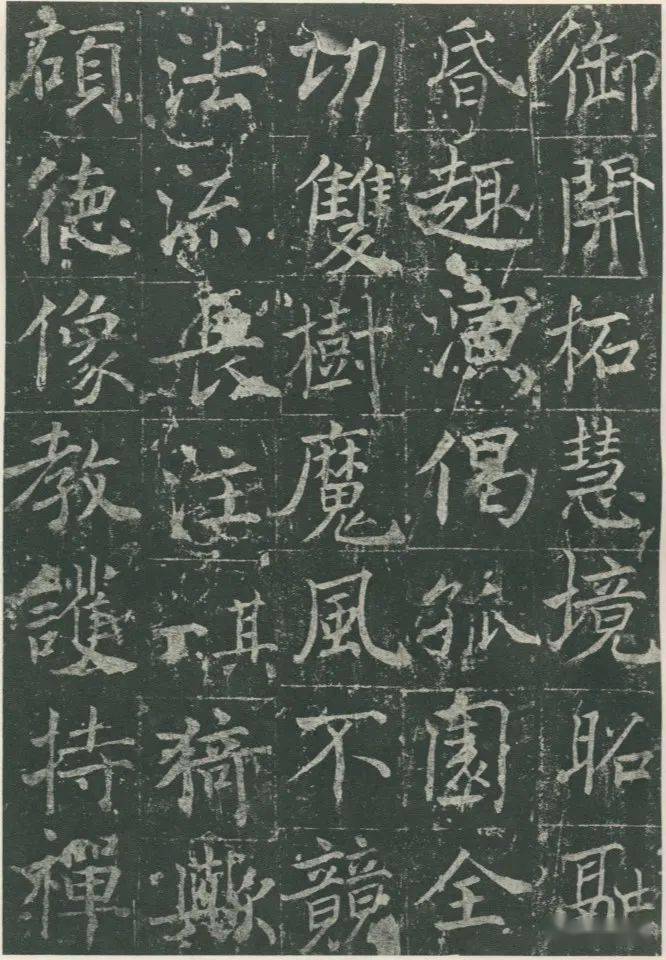 御開柘慧境昭融
昏趣演偈孤園全
功雙樹魔風不競
法流長注其猗歟
碩德像教護持禪